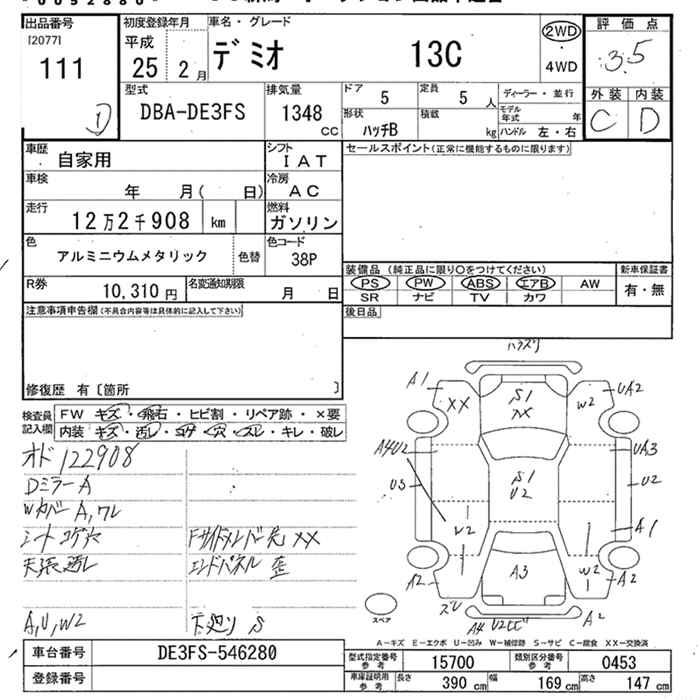 出品番号
[2077]
111
①
初度登録年月
平成
25 2月
車名・グレード
デミオ 13C
2WD
・
4WD
評価点
3.5
外装 内装
C D
型式
DBA-DE3FS
排気量
1348
CC
ドア
5
定員
5 人
ディーラー・並行
形状
ハッチB
積載
kg
モデル年式 年
ハンドル 左・右
車歴
自家用
シフト
IAT
車検
年 月( 日)
冷房
AC
走行
12万2千908 km
燃料
ガソリン
色
アルミニウムメタリック
色替
色コード
38P
R券
10,310 円
名変通知期限
月 日
セールスポイント(正常に機能するものに限ります)
装備品 (純正品に限り○をつけてください)
PS PW ABS エアB AW
SR ナビ TV カワ
新車保証書
有・無
後日品
注意事項申告欄(不具合内容等は具体的に記入して下さい)
修復歴 有〔箇所 〕
検査員
記入欄
FW キズ・飛石・ヒビ割・リペア跡・×要
内装 キズ・汚レ・コゲ・穴・スレ・キレ・破レ
オド122908
Dミラー A
Wカバー A,ワレ
シートコゲ穴
天張汚レ
Fサイドメンバー先 XX
エンドパネル 歪
A,U,W2
下廻り S
A1
XX
S1
XX
W2
UA2
A4U2
UA3
U3
S1
U2
U2
W2
A1
A2
A3
W2
A2
A2
スペア
A-キズ E-エクボ U-凹み W-補修跡 S-サビ C-腐食 XX-交換済
車台番号
DE3FS-546280
登録番号
型式指定番号
参考
15700
類別区分番号
参考
0453
車庫証明用
参考
長さ
390 cm
幅
169 cm
高さ
147 cm